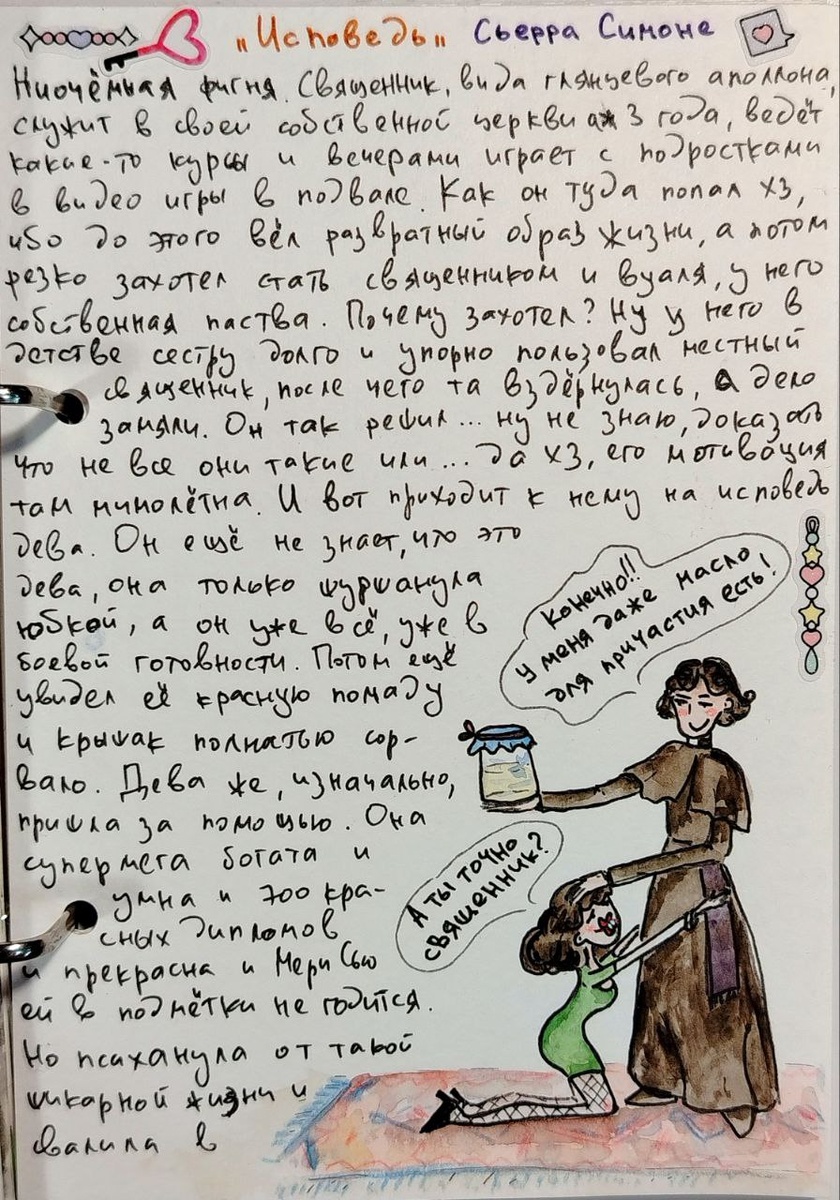 "Исповедь" Сьерра Симоне
Ниочёмная фигня. Священник, вида глянцевого аполлона,
служит в своей собственной церкви аж 3 года, ведёт
какие-то курсы и вечерами играет с подростками
в видео игры в подвале. Как он туда попал ХЗ,
ибо до этого вёл развратный образ жизни, а потом
резко захотел стать священником и вуаля, у него
собственная паства. Почему захотел? Ну у него в
детстве сестру долго и упорно пользовал местный
священник, после чего та вздёрнулась, а дело
замяли. Он так решил... ну не знаю, доказать
что не все они такие или... да ХЗ, его мотивация
там мимолётна. И вот приходит к нему на исповедь
дева. Он ещё не знает, что это
дева, она только шуршанула
юбкой, а он уже всё, уже в
боевой готовности. Потом ещё
увидел её красную помаду
и крышак полнатью сор-
вало. Дева же, изначально,
пришла за помощью. Она
супермега богата и
умна и 700 кра-
сных дипломов
и прекрасна и Мери Сью
ей в подмётки не годится.
Но психанула от такой
шикарной жизни и
свалила в
Конечно!!
У меня даже масло
для причастия есть!
А ты точно
священник?